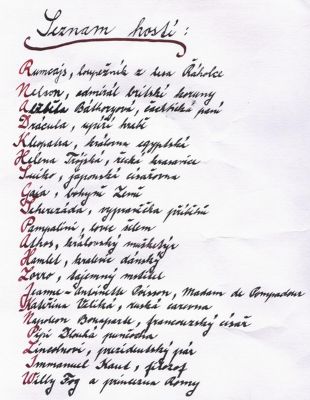 Seznam hostí:
Rumcajs, loupežník z lesa Řáholce
Nelson, admirál britské koruny
Alžběta Báthoryová, čachtická paní
Dracula, upíří hrabě
Kleopatra, královna egyptská
Helena Trójská, řecká krasavice
Suiko, japonská císařovna
Gaia, bohyně Země
Šeherezáda, vypravěčka příběhů
Pampalini, lovec šelem
Athos, královský mušketýr
Hamlet, kralevic dánský
Zorro, tajemný mstitel
Jeanne-Antoinette Poisson, Madam de Pompadour
Kateřina Veliká, ruská carevna
Napoleon Bonaparte, francouzský císař
Pipi Dlouhá punčocha
Lincolnovi, prezidentský pár
Immanuel Kant, filozof
Willy Fog a princezna Romy